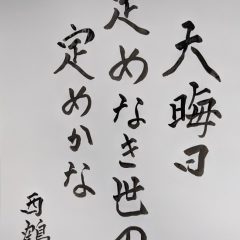 天晦日
定めなき世の
定めかな
西鶴